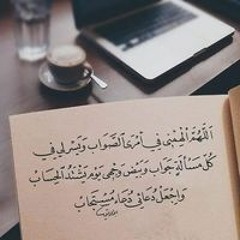 اَللّٰهُمَّ اَلْهِمْنِي فِي اَمْرِى الصَّوَابَ وَيَسِّرْ لِي فِي
كُلِّ مَسْاَلَةٍ جَوَابَ وَبَيِّضْ وَجْهِى يَوْمَ يَشْتَدُّ الْحِسَابُ
وَاجْعَلْ دُعَائِي دُعَاءً مُسْتَجَابَ